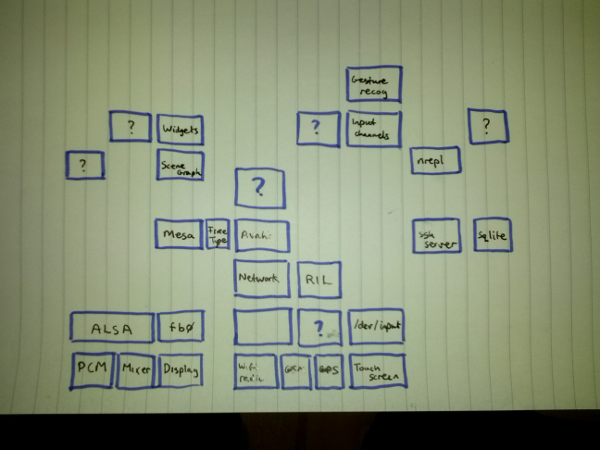 Gesture
recog
?
Widgets
?
Input
channels
?
?
Scene
Graph
nrepl
?
Mesa
Free
Type
Avahi
ssh
server
sqlite
Network
RIL
ALSA
fb0
?
/dev/input
PCM
Mixer
Display
Wifi
GSM
GPS
Touch
Screen